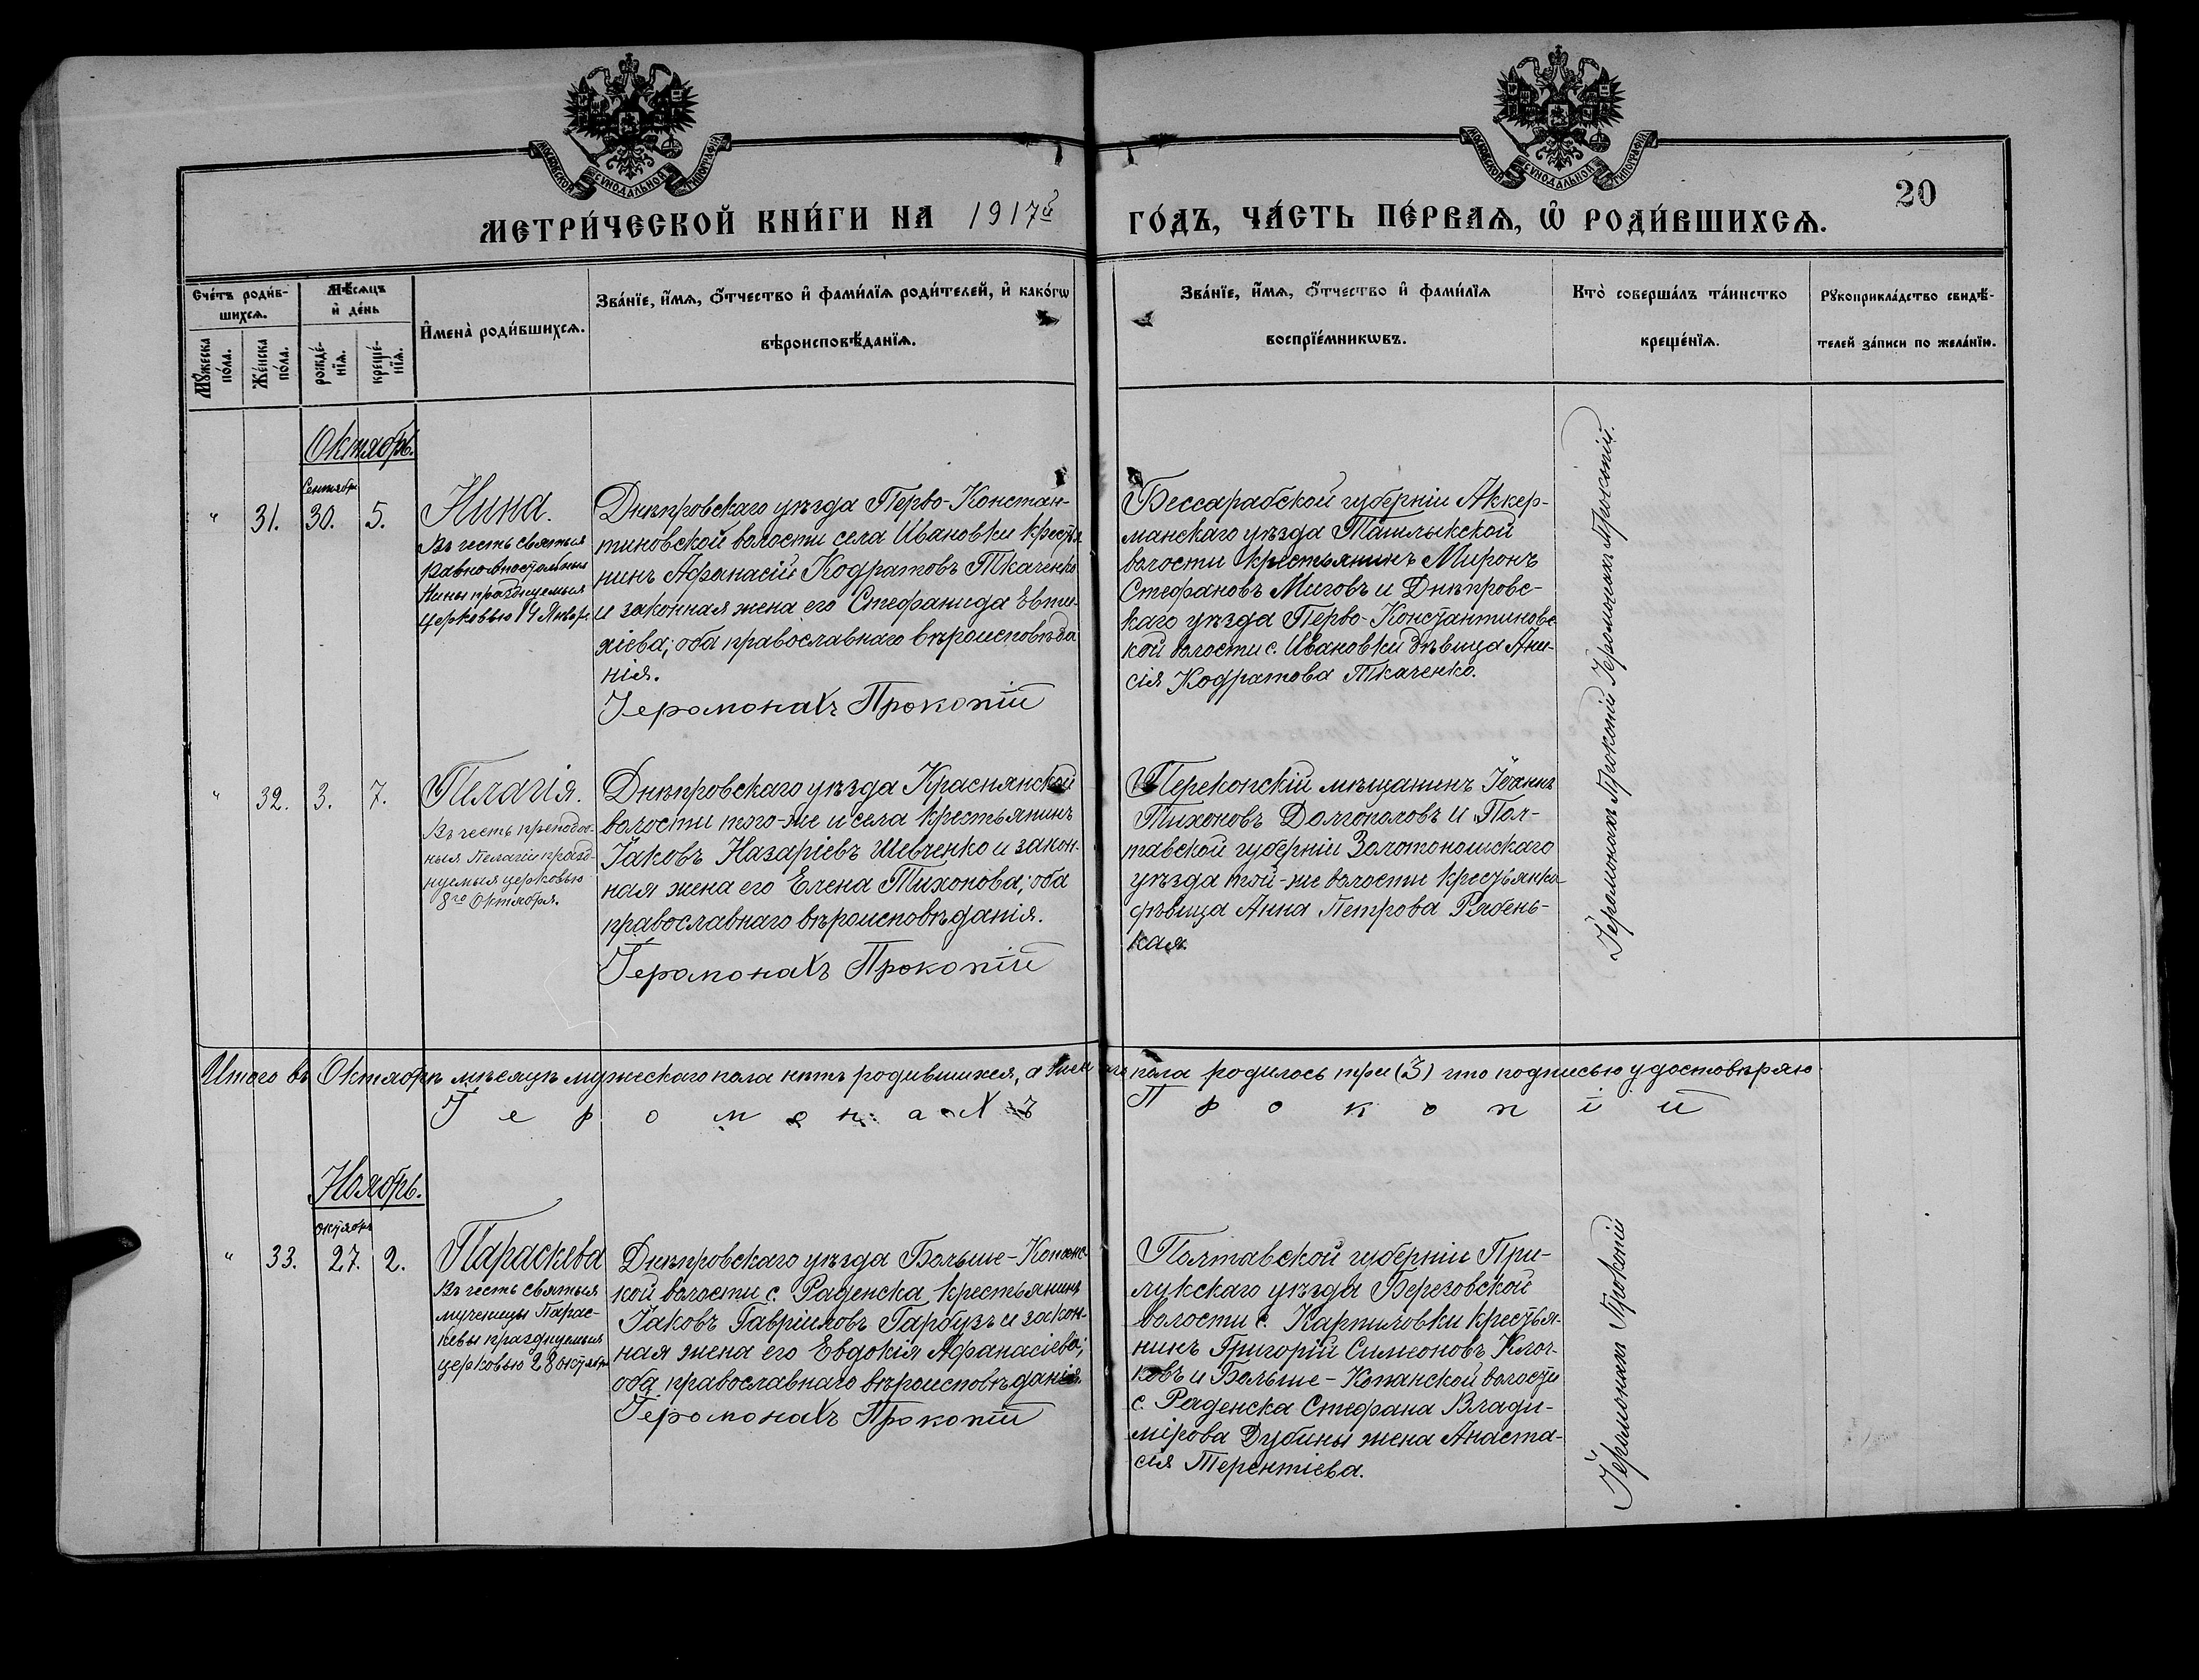 МОСКОВСКОЙ СѴНОДАЛЬНОЙ ТИПОГРАФІИ
МОСКОВСКОЙ СѴНОДАЛЬНОЙ ТИПОГРАФІИ
20
МЕТРИ́ЧЕСКОЙ КНИ́ГИ НА 1917й ГО́ДЪ, ЧА́СТЬ ПЕ́РВАѦ, Ѡ РОДИ́ВШИХСѦ.
Сче́тъ роди́в-
шихсѧ.
Мꙋ́жеска
по́ла.
Же́нска
по́ла.
Мѣ́сѧцъ
и де́нь
рожде́-
нїѧ.
креще́-
нїѧ.
Имена̀ роди́вшихсѧ.
Зва́нїе, и́мѧ, ѻ́тчество и фами́лїѧ роди́телей, и како́гѡ
вѣроисповѣ́данїѧ.
Зва́нїе, и́мѧ, ѻ́тчество и фами́лїѧ
воспрїе́мникѡвъ.
Кто̀ соверша́лъ та́инство
креще́нїѧ.
Рꙋкоприкла́дство свидѣ́-
телей за́писи по жела́нїю.
Октябрь.
Сентябр.
" 31. 30. 5.
Нина.
Въ честь святыя
Равноапостольныя
Нины празднуемыя
церковью 14 Январ.
Днѣпровскаго уѣзда Перво-Констан-
тиновской волости села Ивановки крестья
нинъ Афанасій Кодратовъ Ткаченко
и законная жена его Стефанида Евти-
хіева; оба православнаго вѣроисповѣда
нія.
Іеромонахъ Прокопій
Бессарабской губерніи Аккер-
манскаго уѣзда Ташлыкской
волости крестьянинъ Миронъ
Стефановъ Миговъ и Днѣпровс-
каго уѣзда Перво-Константиновс
кой волости с. Ивановки дѣвица Ани-
сія Кодратова Ткаченко.
Іеромонахъ Прокопій Іеромонахъ Прокопій.
" 32. 3. 7.
Пелагія.
Въ честь преподоб-
ныя Пелагіи празд-
нуемыя церковью
8го Октября.
Днѣпровскаго уѣзда Краснянской
волости того-же и села крестьянинъ
Іаковъ Назаріевъ Шевченко и закон-
ная жена его Елена Тихонова; оба
православнаго вѣроисповѣданія.
Іеромонахъ Прокопій
Перекопскій мѣщанинъ Іоаннъ
Тихоновъ Долгополовъ и Пол-
тавской губерніи Золотоношскаго
уѣзда той-же волости крестьянка
дѣвица Анна Петрова Рябень-
кая.
Итого въ Октябрѣ мѣсяцѣ мужескаго пола нѣтъ родившихся, а женскаго пола родилось три (3) что подписью удостовѣряю
Іеромонахъ Прокопій
Ноябрь.
Октябрь
" 33. 27. 2.
Параскева
Въ честь святыя
мученицы Парас-
кевы празднуемыя
церковью 28 октябр
Днѣпровскаго уѣзда Больше-Копанс-
кой волости с. Раденска крестьянинъ
Іаковъ Гавріиловъ Гарбузъ и закон-
ная жена его Евдокія Афанасіева;
оба православнаго вѣроисповѣданія.
Іеромонахъ Прокопій
Полтавской губерніи При-
лукскаго уѣзда Березовской
волости с. Карпиловки крестья-
нинъ Григорій Симеоновъ Клоч-
ковъ и Больше-Копанской волости
с. Раденска Стефана Влади-
мірова Дубины жена Анаста-
сія Терентіева.
Іеромонахъ Прокопій